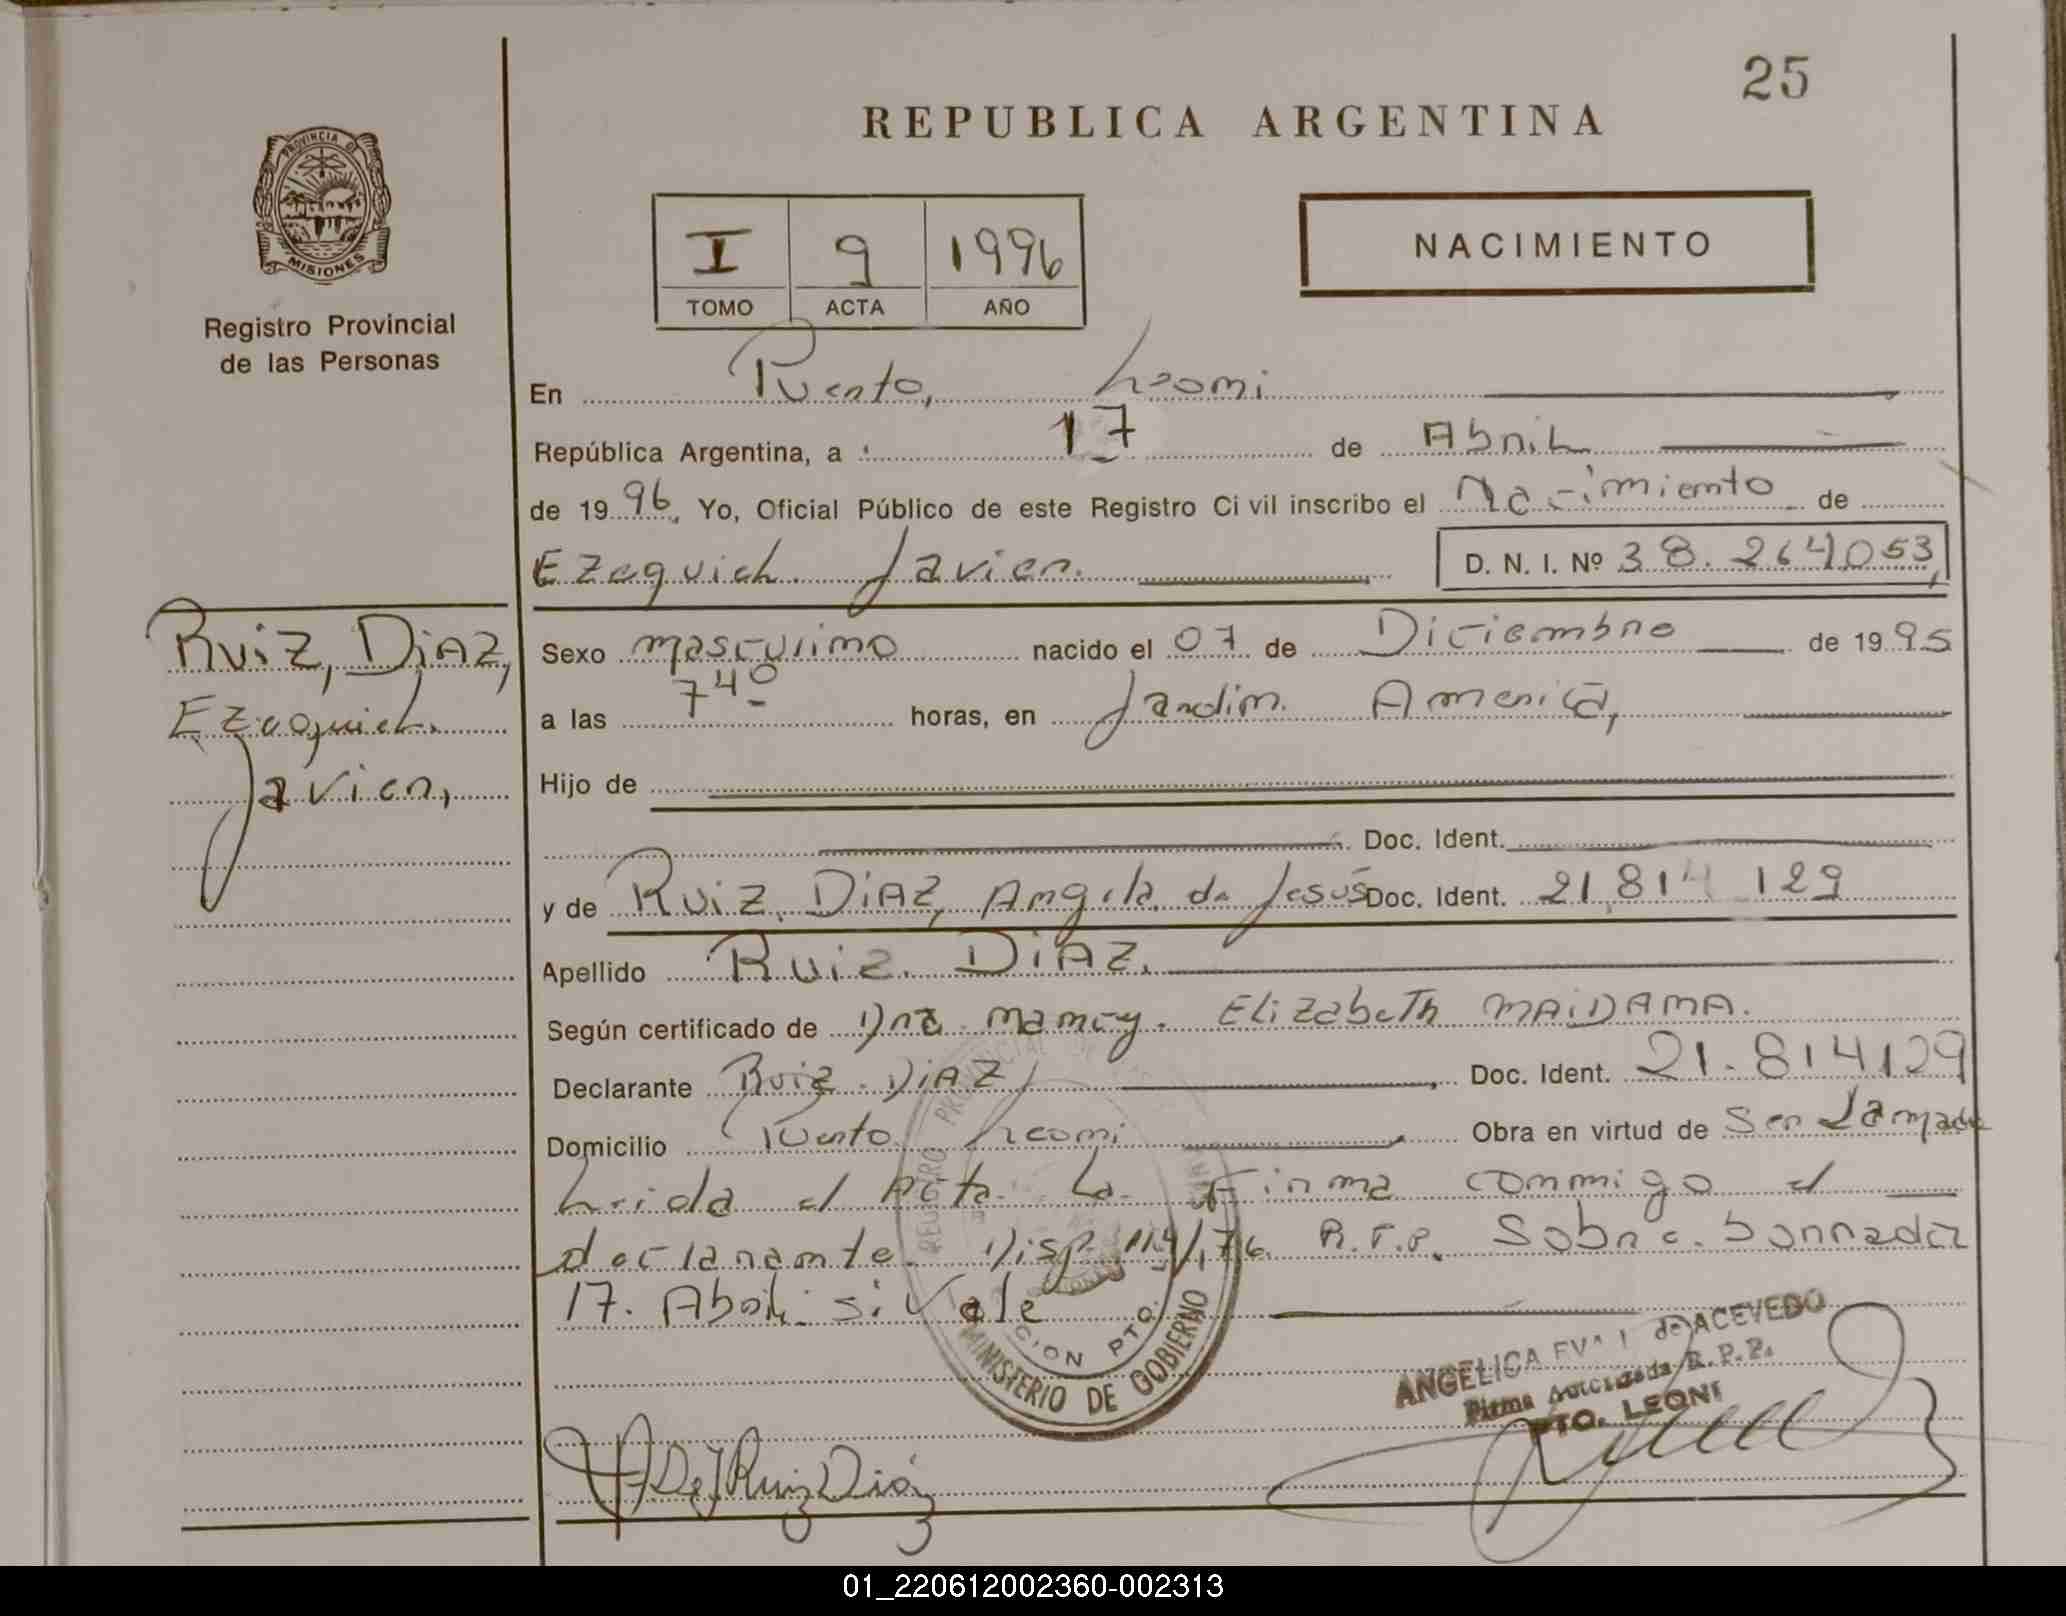 25
REPUBLICA ARGENTINA
PROVINCIA DE
MISIONES
Registro Provincial
de las Personas
I 9 1996
TOMO ACTA AÑO
NACIMIENTO
En Puerto, Leoni
República Argentina, a 17 de Abril
de 1996, Yo, Oficial Público de este Registro Civil inscribo el Nacimiento de
Ezequiel Javier. D. N. I. Nº 38.264053,
Ruiz, DiAZ,
Ezequiel.
Javier,
Sexo masculino nacido el 07 de Diciembre de 1995
a las 7 40 horas, en Jardin America,
Hijo de
Doc. Ident.
y de Ruiz, DiAZ, Angela de Jesús Doc. Ident. 21.814 129
Apellido Ruiz. DiAZ.
Según certificado de Dra. Nancy. Elizabeth MAiDANA.
Declarante Ruiz. DiAZ, Doc. Ident. 21.814129
Domicilio Puerto Leoni Obra en virtud de Ser Llamado
Leida el Acta La Firma conmigo el
declarante. Disp. 114/76. R.P.P. Sobre. borrado
17. Abril. si Vale
REGISTRO PROVINCIAL DE
CION PTO.
MINISTERIO DE GOBIERNO
ANGELICA de ACEVEDO
Firma Autorizada R.P.P.
PTO. LEONI
A De J Ruiz Diáz
01_220612002360-002313